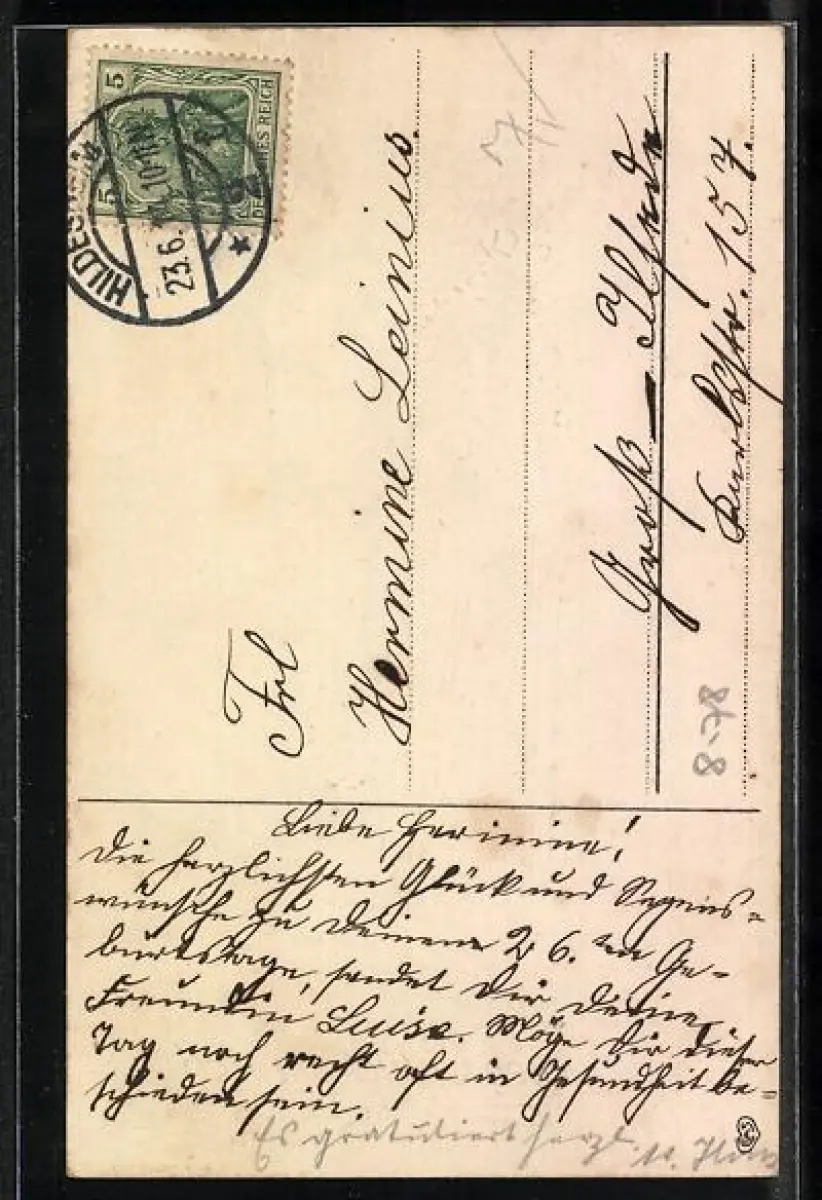 5 5
DEUTSCHES REICH
HILDESHEIM
23.6. 10-11 V.
Frl
Hermine Leinius.
Groß-Ilsede
Karlstr. 157.
8-78
Liebe Hermine!
Die herzlichsten Glück und Segens-
wünsche zu Deinem 26.ten Ge-
burtstage, sendet Dir Deine
Freundin Luise. Möge Dir dieser
Tag noch recht oft in Gesundheit be-
schieden sein.
Es gratuliert herzl.